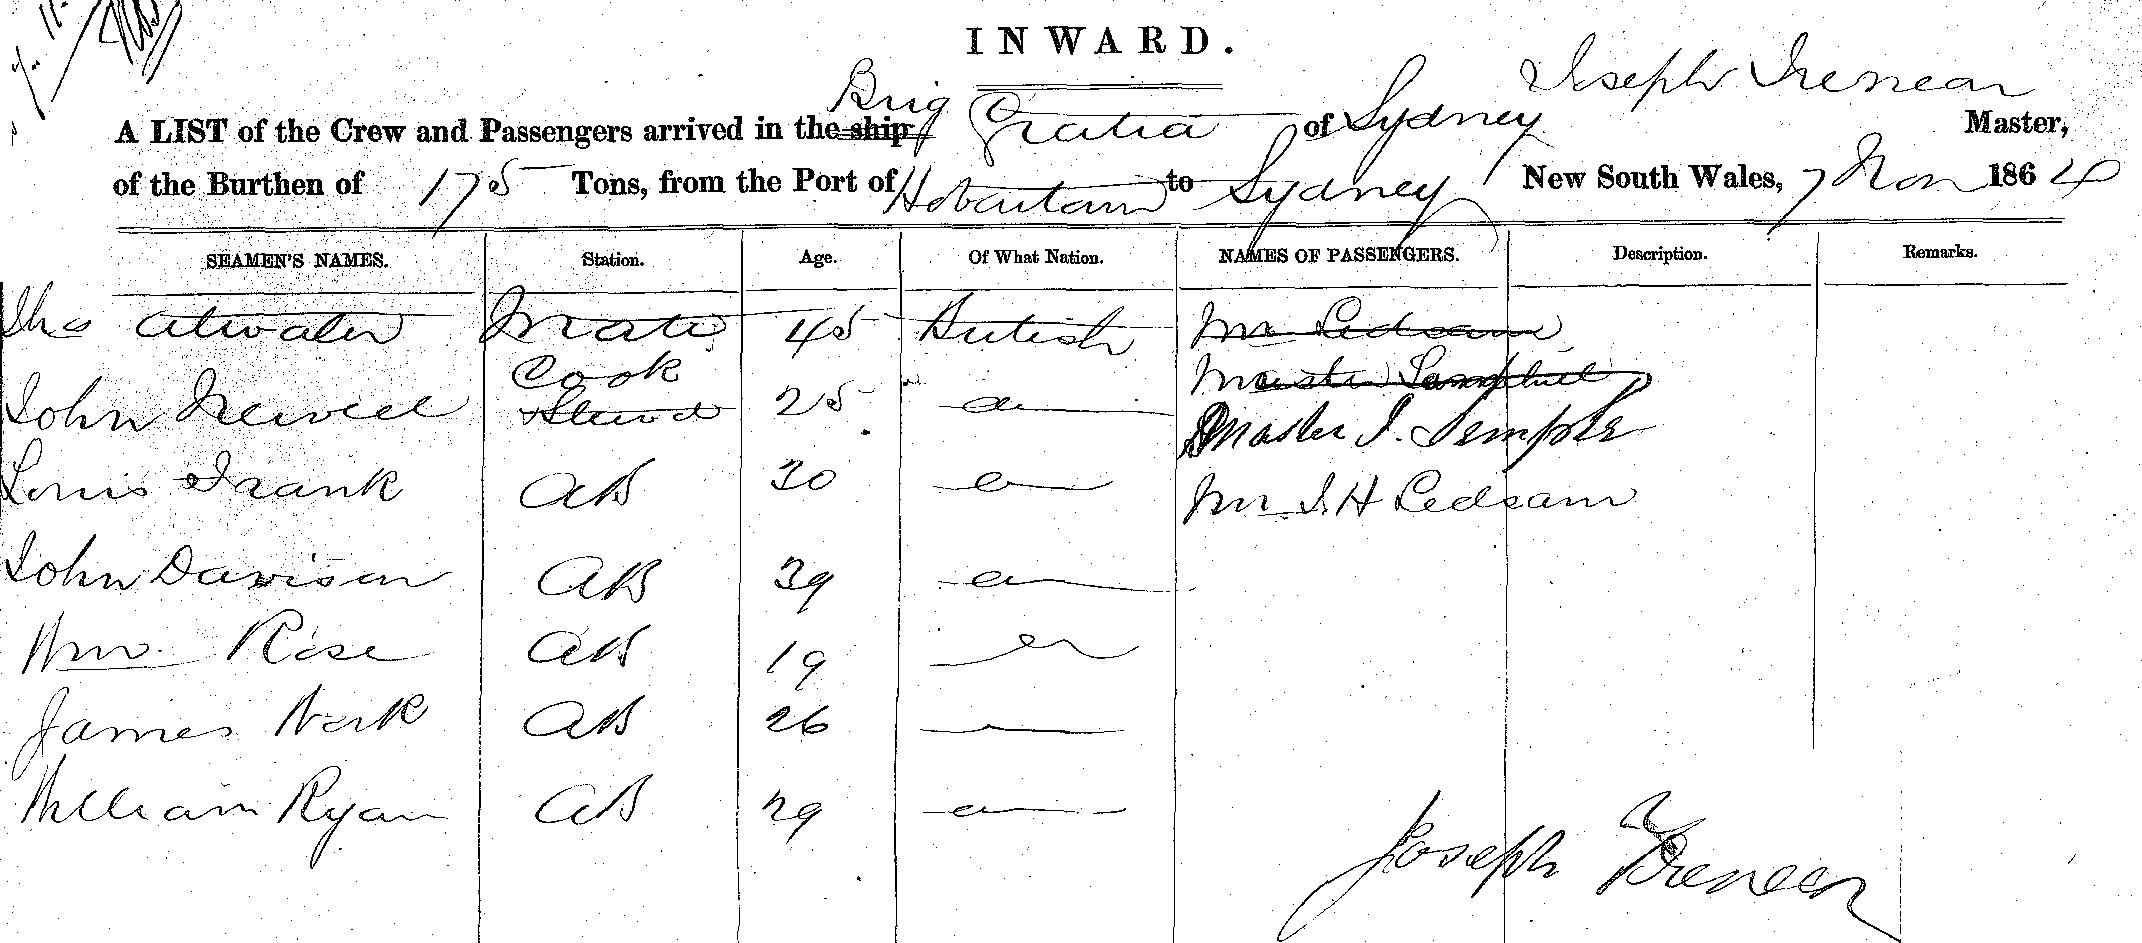 INWARD.
Brig Joseph Trenear
A LIST of the Crew and Passengers arrived in the ship Gratia of Sydney Master,
of the Burthen of 175 Tons, from the Port of Hobartown to Sydney New South Wales, 7 Nov 1864
SEAMEN'S NAMES. Station. Age. Of What Nation. NAMES OF PASSENGERS. Description. Remarks.
Thos Atwater Mate 45 British Mr Ledsam
Cook Master
John Stewd 25 Master J. Temple
Louis Frank AB 30 Mr J. H Ledsam
John Davison AB 39
Wm. Rose AB 19
James AB 26
William Ryan AB 29
Joseph Trenear